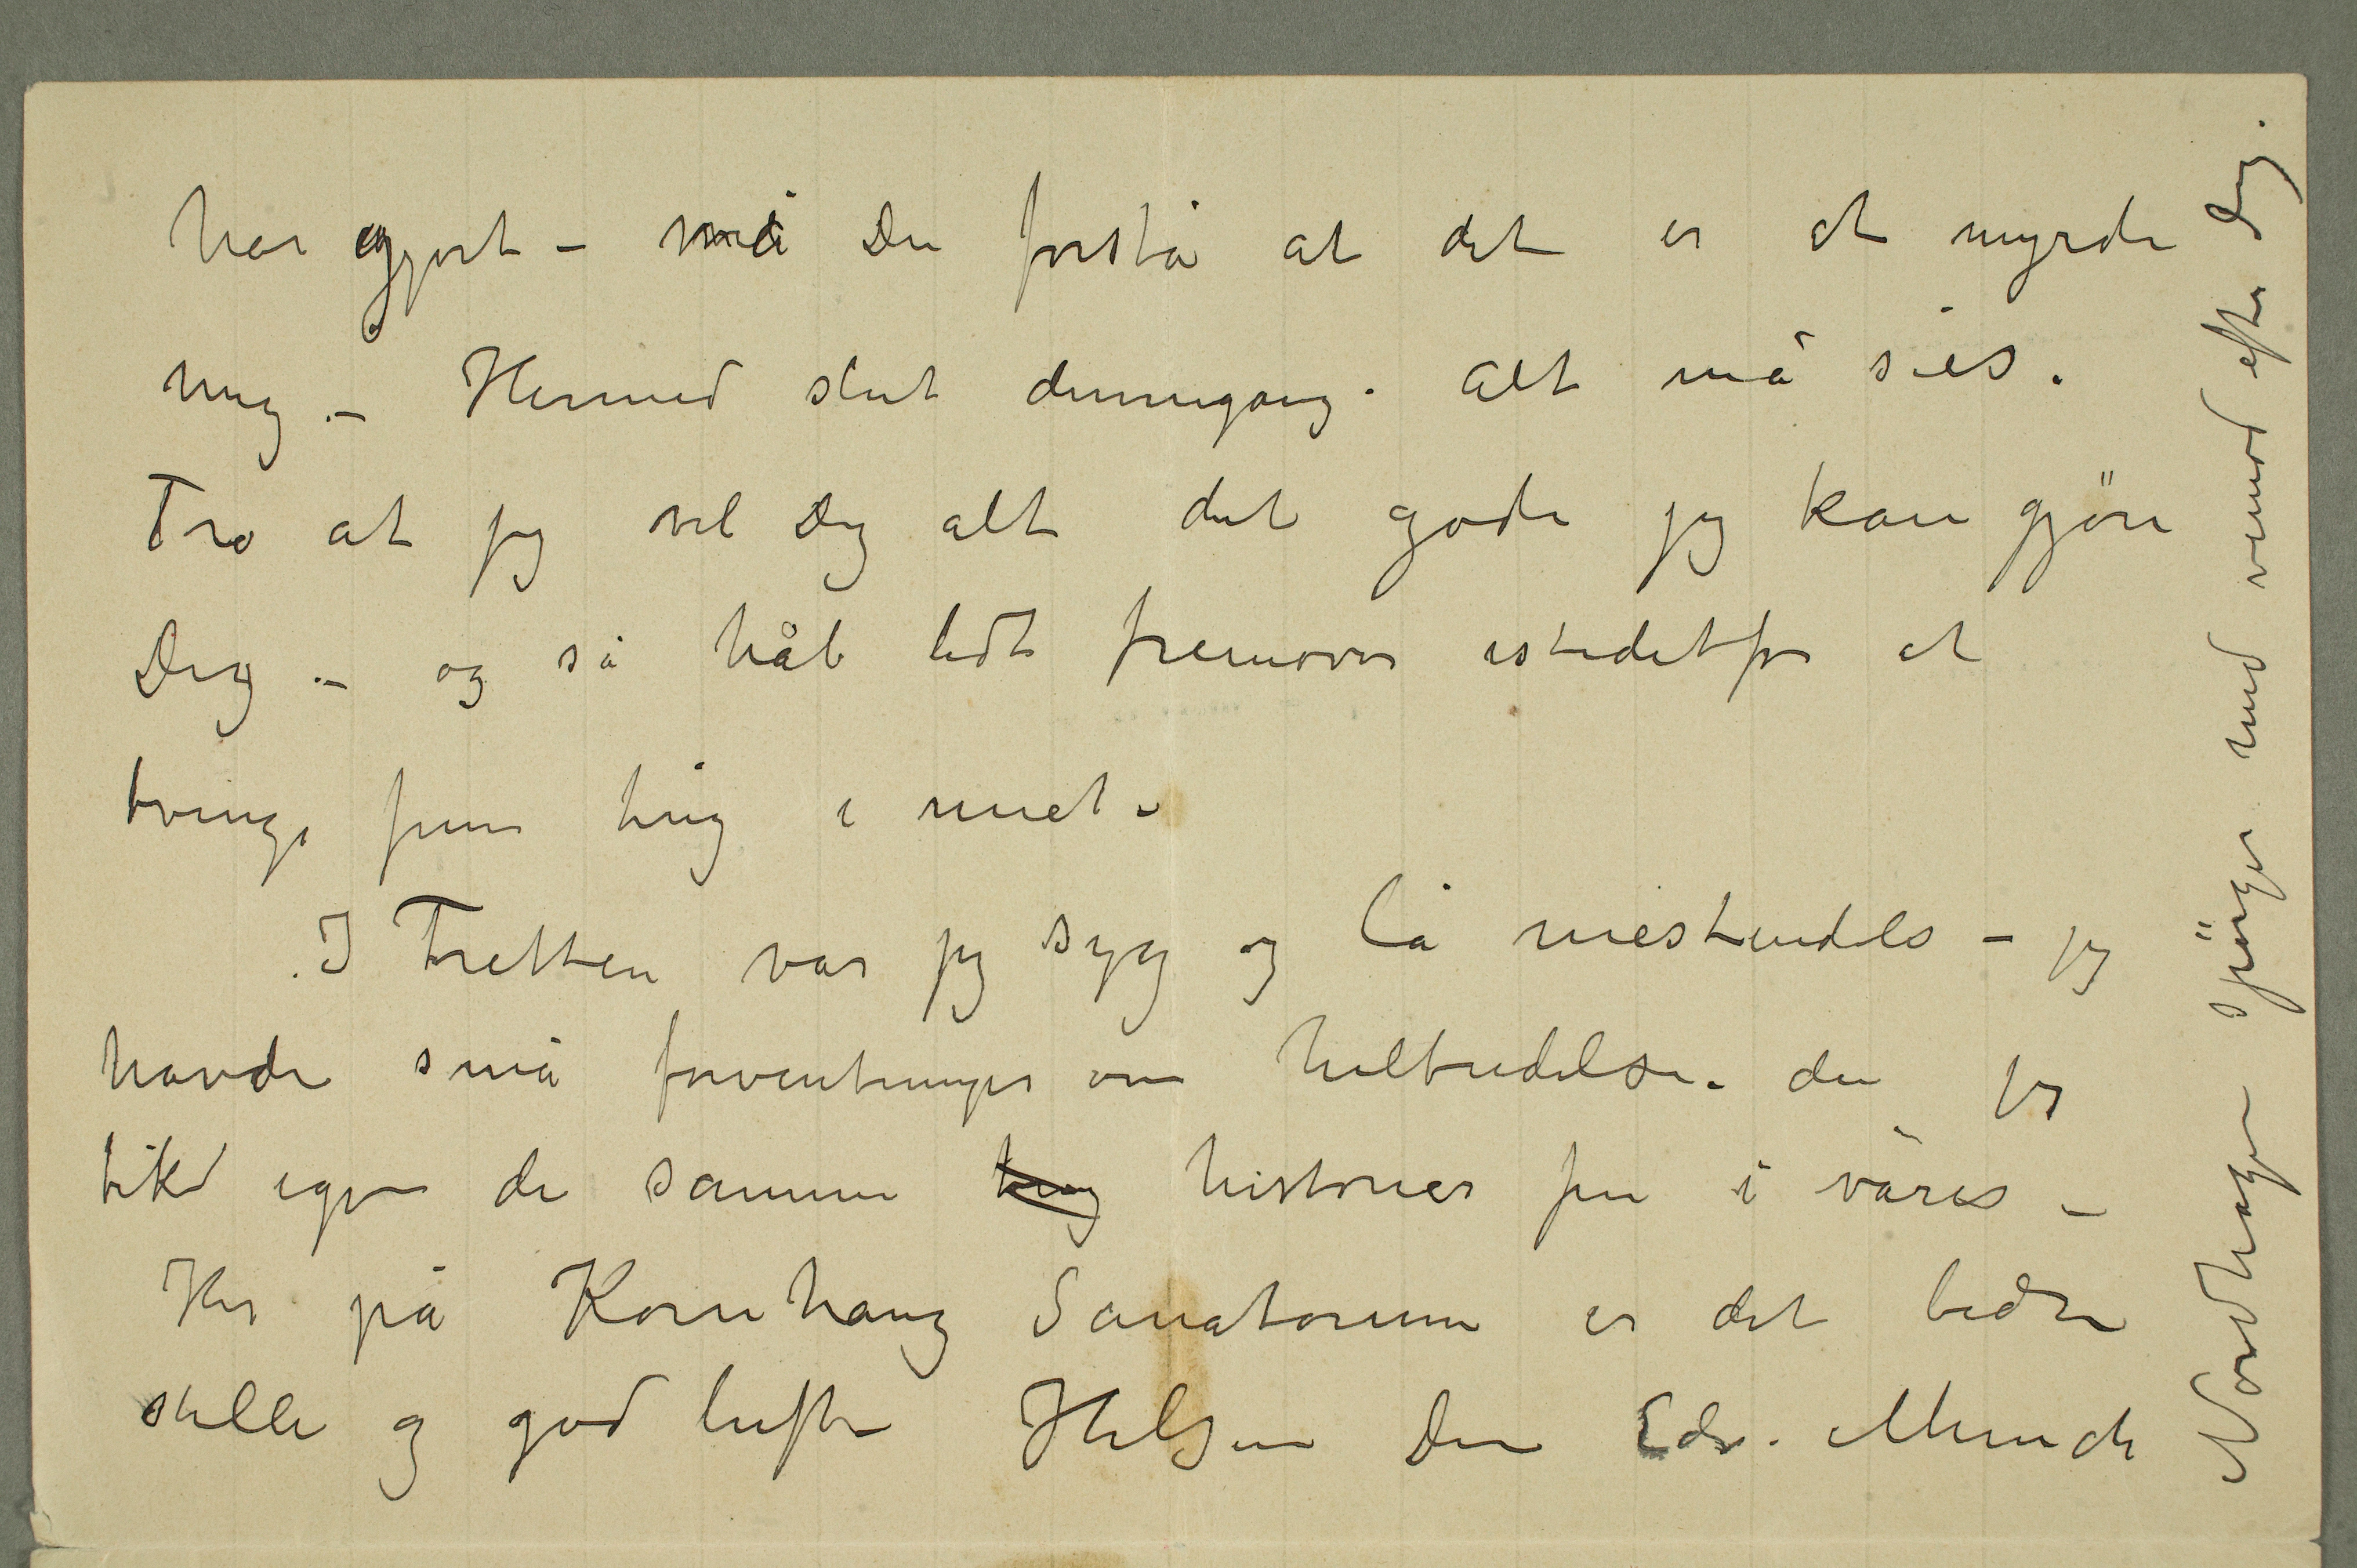 har gjort – må Du forstå at det er at myrde
mig. – Hermed slut dennegang. Alt må sies.
Tro at jeg vil Dig alt det gode jeg kan gjöre
Dig. – og så håb lidt fremover istedetfor at
tvinge frem ting i nuet –
I Tretten var jeg syg og lå mestendels – jeg
havde små forventninger om helbredelse. da jeg
fik igen de samme ting historier fra i våres –
Her på Kornhaug Sanatorium er det bedre
stille og god luft – Hilsen Din Edv. Munch
Nordhagen spörger med vemod efter Dig.